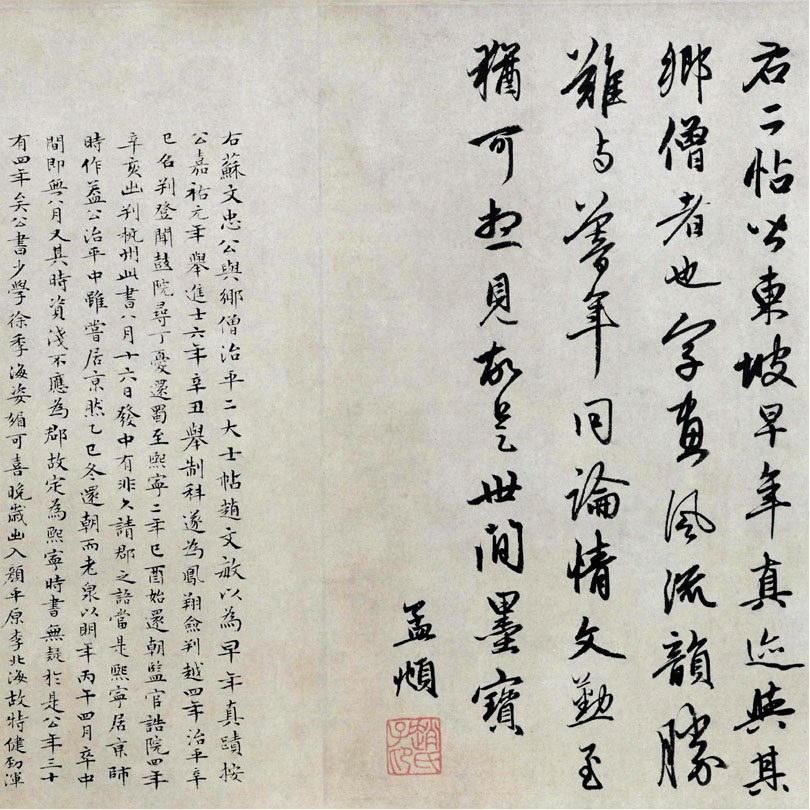 右二帖皆東坡早年真迹與其
鄉僧者也字畫風流韻勝
難与暮年同論情文勤至
猶可想見故是世間墨寶
孟頫
趙氏子昂
右蘇文忠公與鄉僧治平二大士帖趙文敏以為早年真蹟按
公嘉祐元年舉進士六年辛丑舉制科遂為鳳翔僉判越四年治平辛
巳名判登聞鼓院尋丁憂還蜀至熙寧二年巳酉始還朝監官誥院四年
辛亥出判杭州此書八月十六日發中有非久請郡之語當是熙寧居京師
時作蓋公治平中雖嘗居京然乙巳冬還朝而老泉以明年丙午四月卒中
間即無八月又其時資淺不應為郡故定為熙寧時書無疑於是公年三十
有四年矣公書少學徐季海姿媚可喜晚歲出入顏平原李北海故特健勁渾